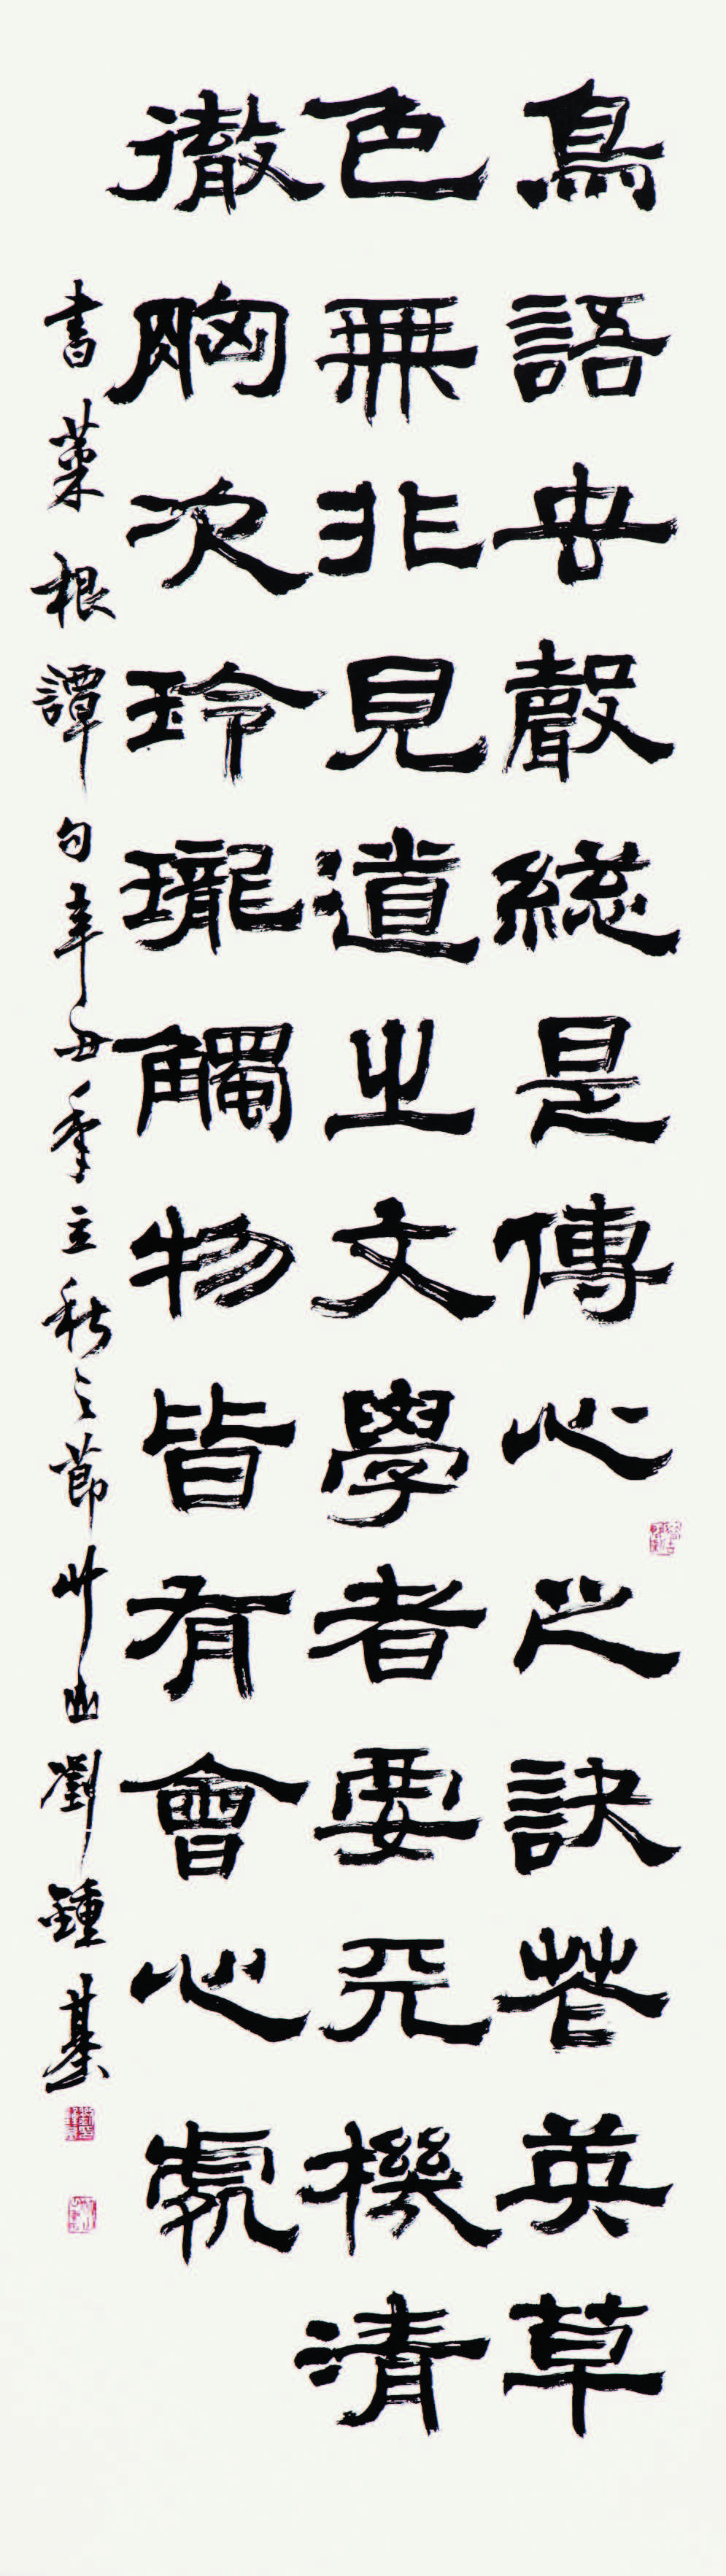 鳥語虫聲総是傳心之訣花英草
色無非見道之文學者要天機清
徹胸次玲瓏觸物皆有會心處
書菜根譚句辛丑年立秋之節竹幽劉鍾基